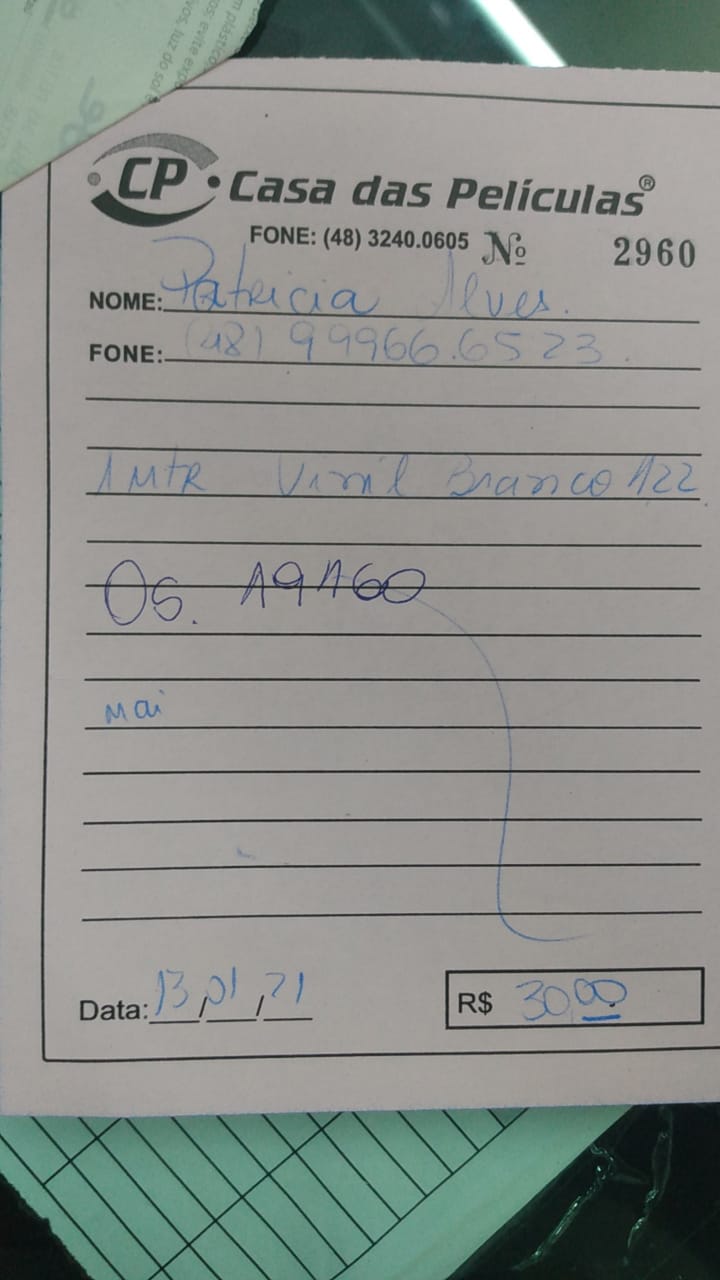 CP Casa das Películas®
FONE: (48) 3240.0605 Nº 2960
NOME: Patricia Alves.
FONE: (48) 99966.6523.
1 Mtr Vinil Branco 122
OS. 19160
Mai
Data: 13/01/21
R$ 30,00